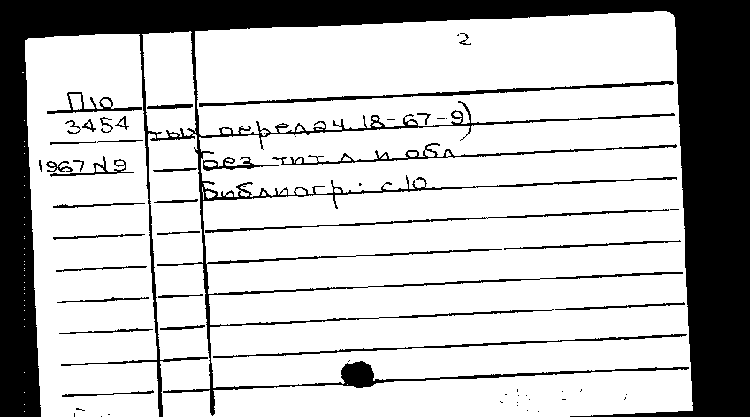 2
П10
3454 тых передач 18-67-9)
1967 N9 Без тит. л. и обл.
Библиогр.: с. 10.